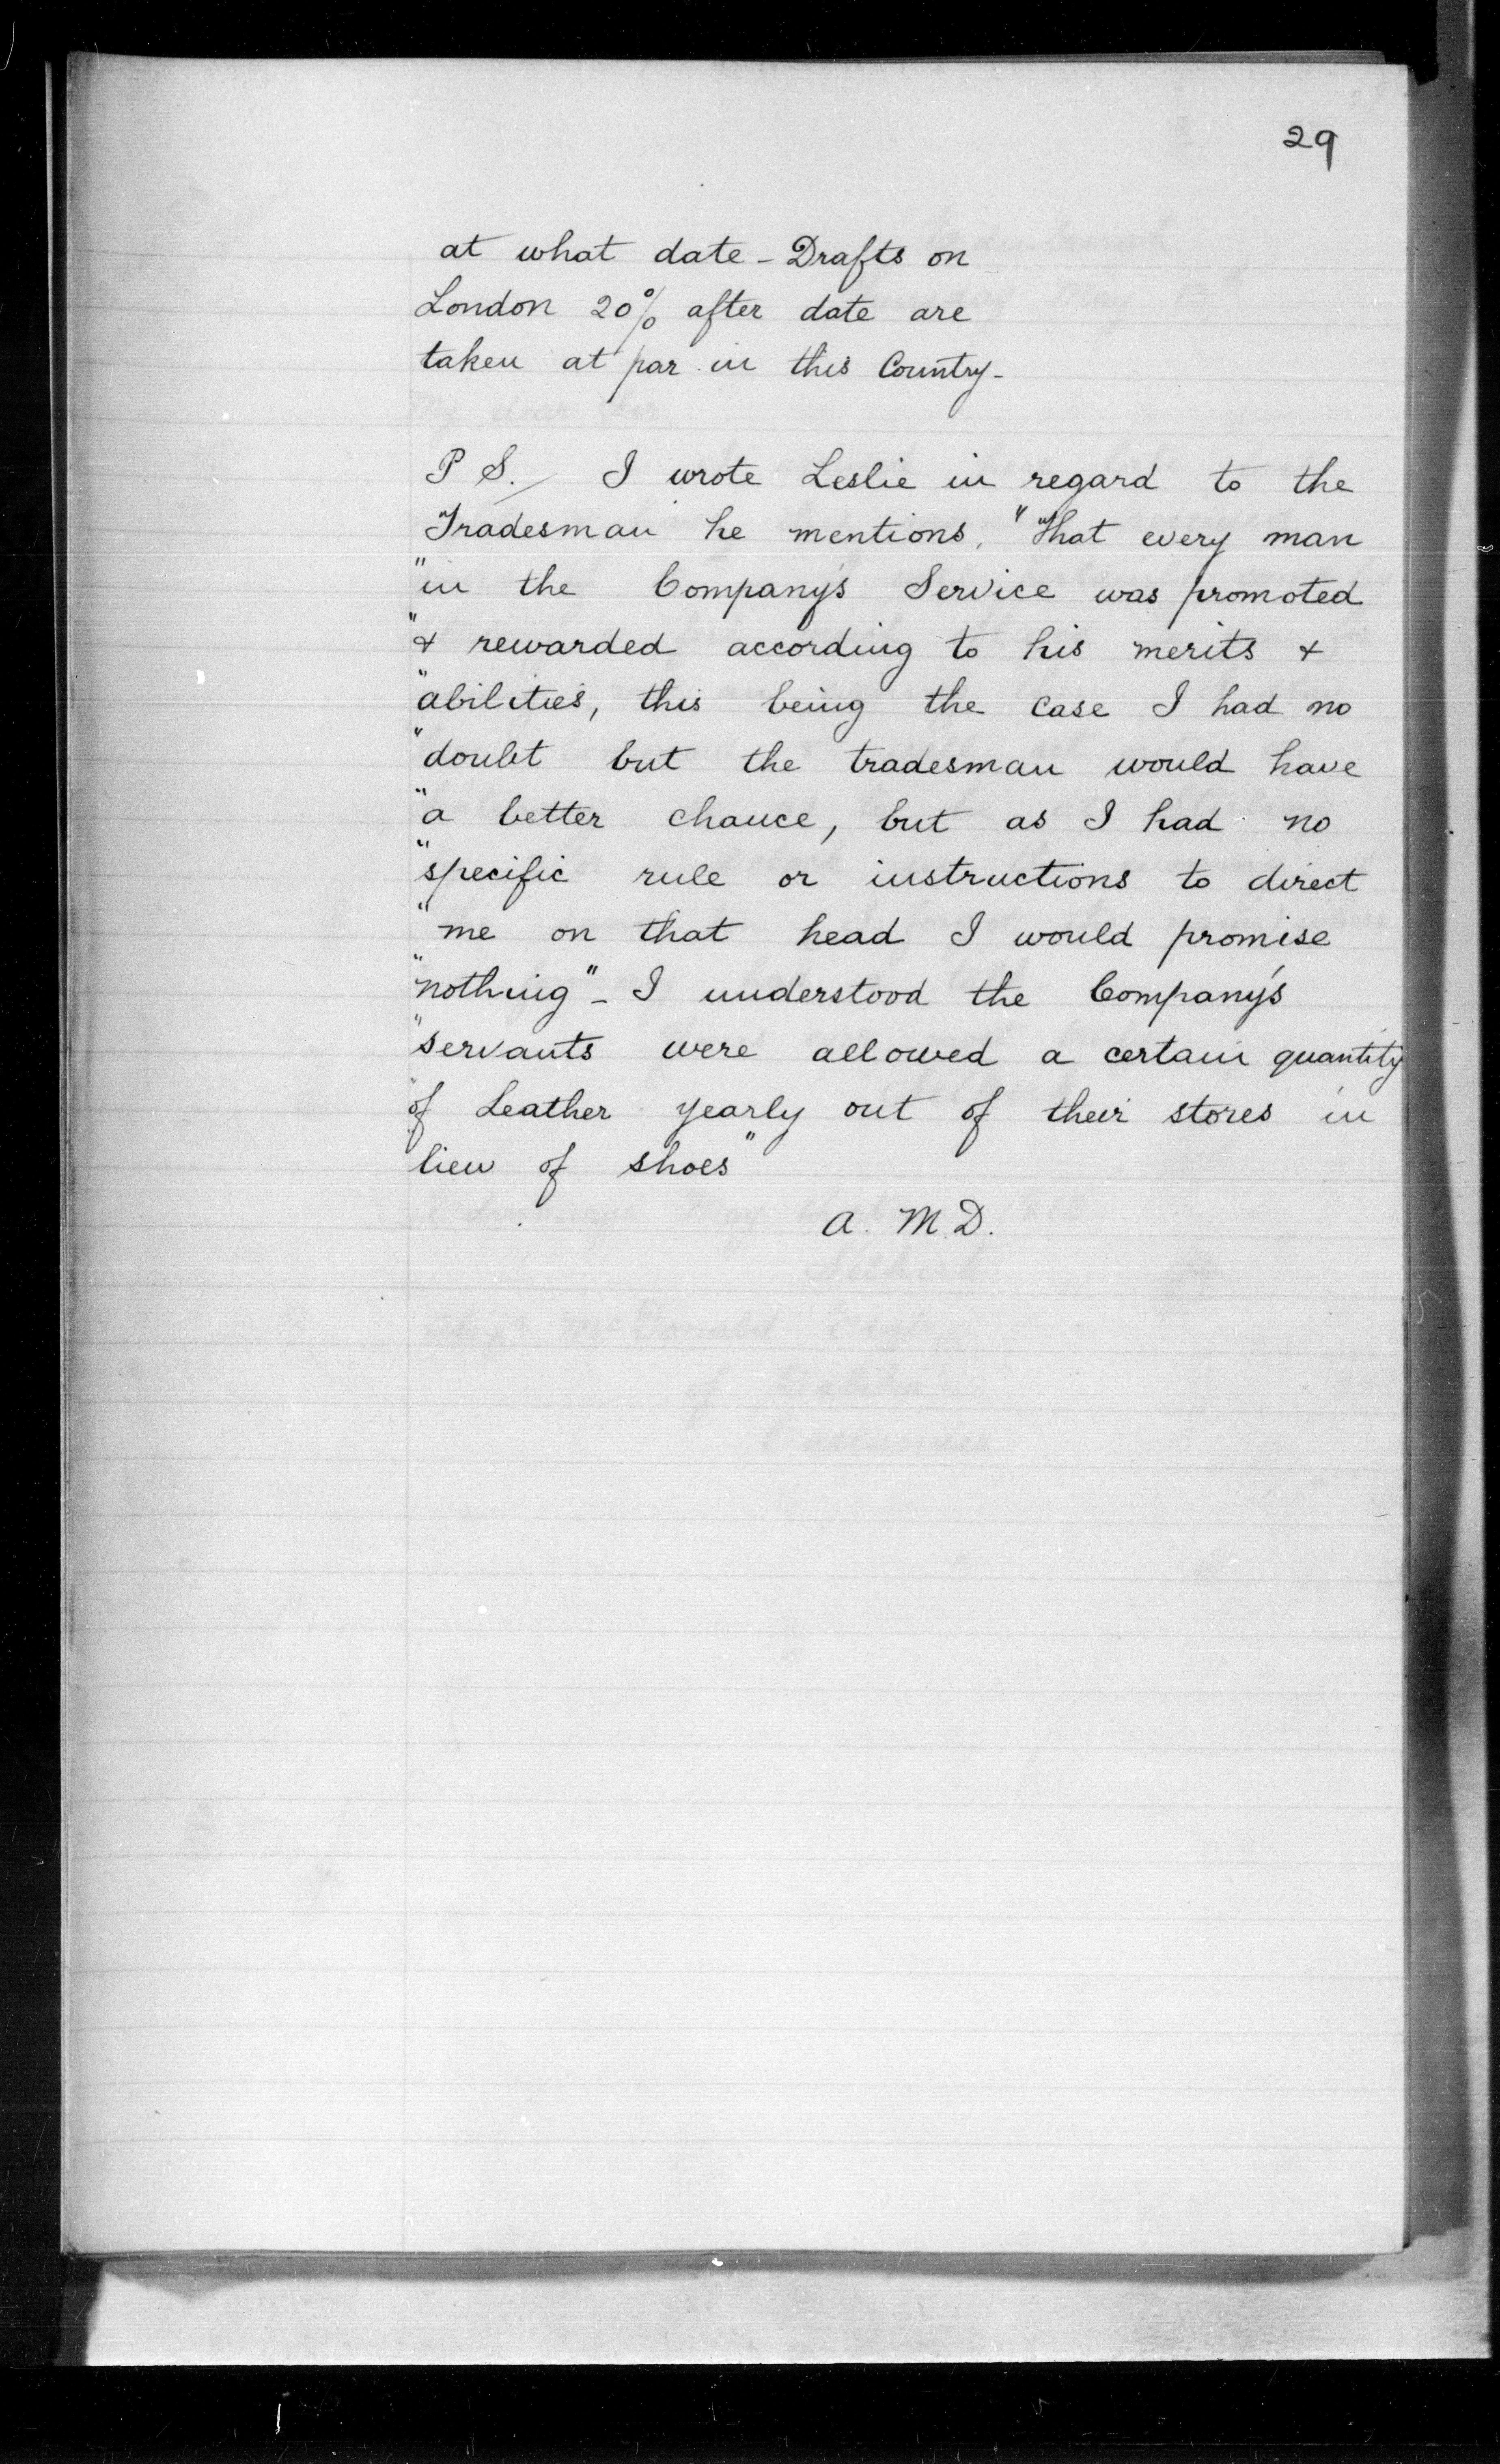 29
at what date - Drafts on
London 20% after date are
taken at par in this Country -
P S./ I wrote Leslie in regard to the
Tradesman he mentions, "That every man
"in the Company's Service was promoted
"& rewarded according to his merits &
"abilities, this being the case I had no
"doubt but the tradesman would have
"a better chance, but as I had no
"specific rule or instructions to direct
"me on that head I would promise
"nothing" - I understood the Company's
"servants were allowed a certain quantity
"of Leather yearly out of their stores in
lieu of shoes"
A. M D.